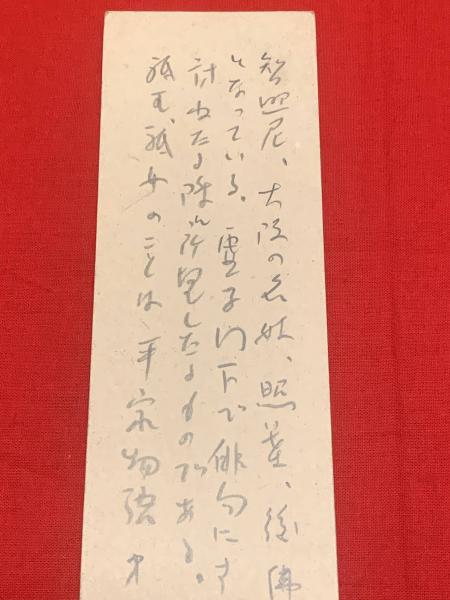 智照尼、大阪の名妓、照葉、後佛
となっている。虚子門下で俳句にす
訪ねたる際所望したるものである。
祇王、祇女のことは平家物語